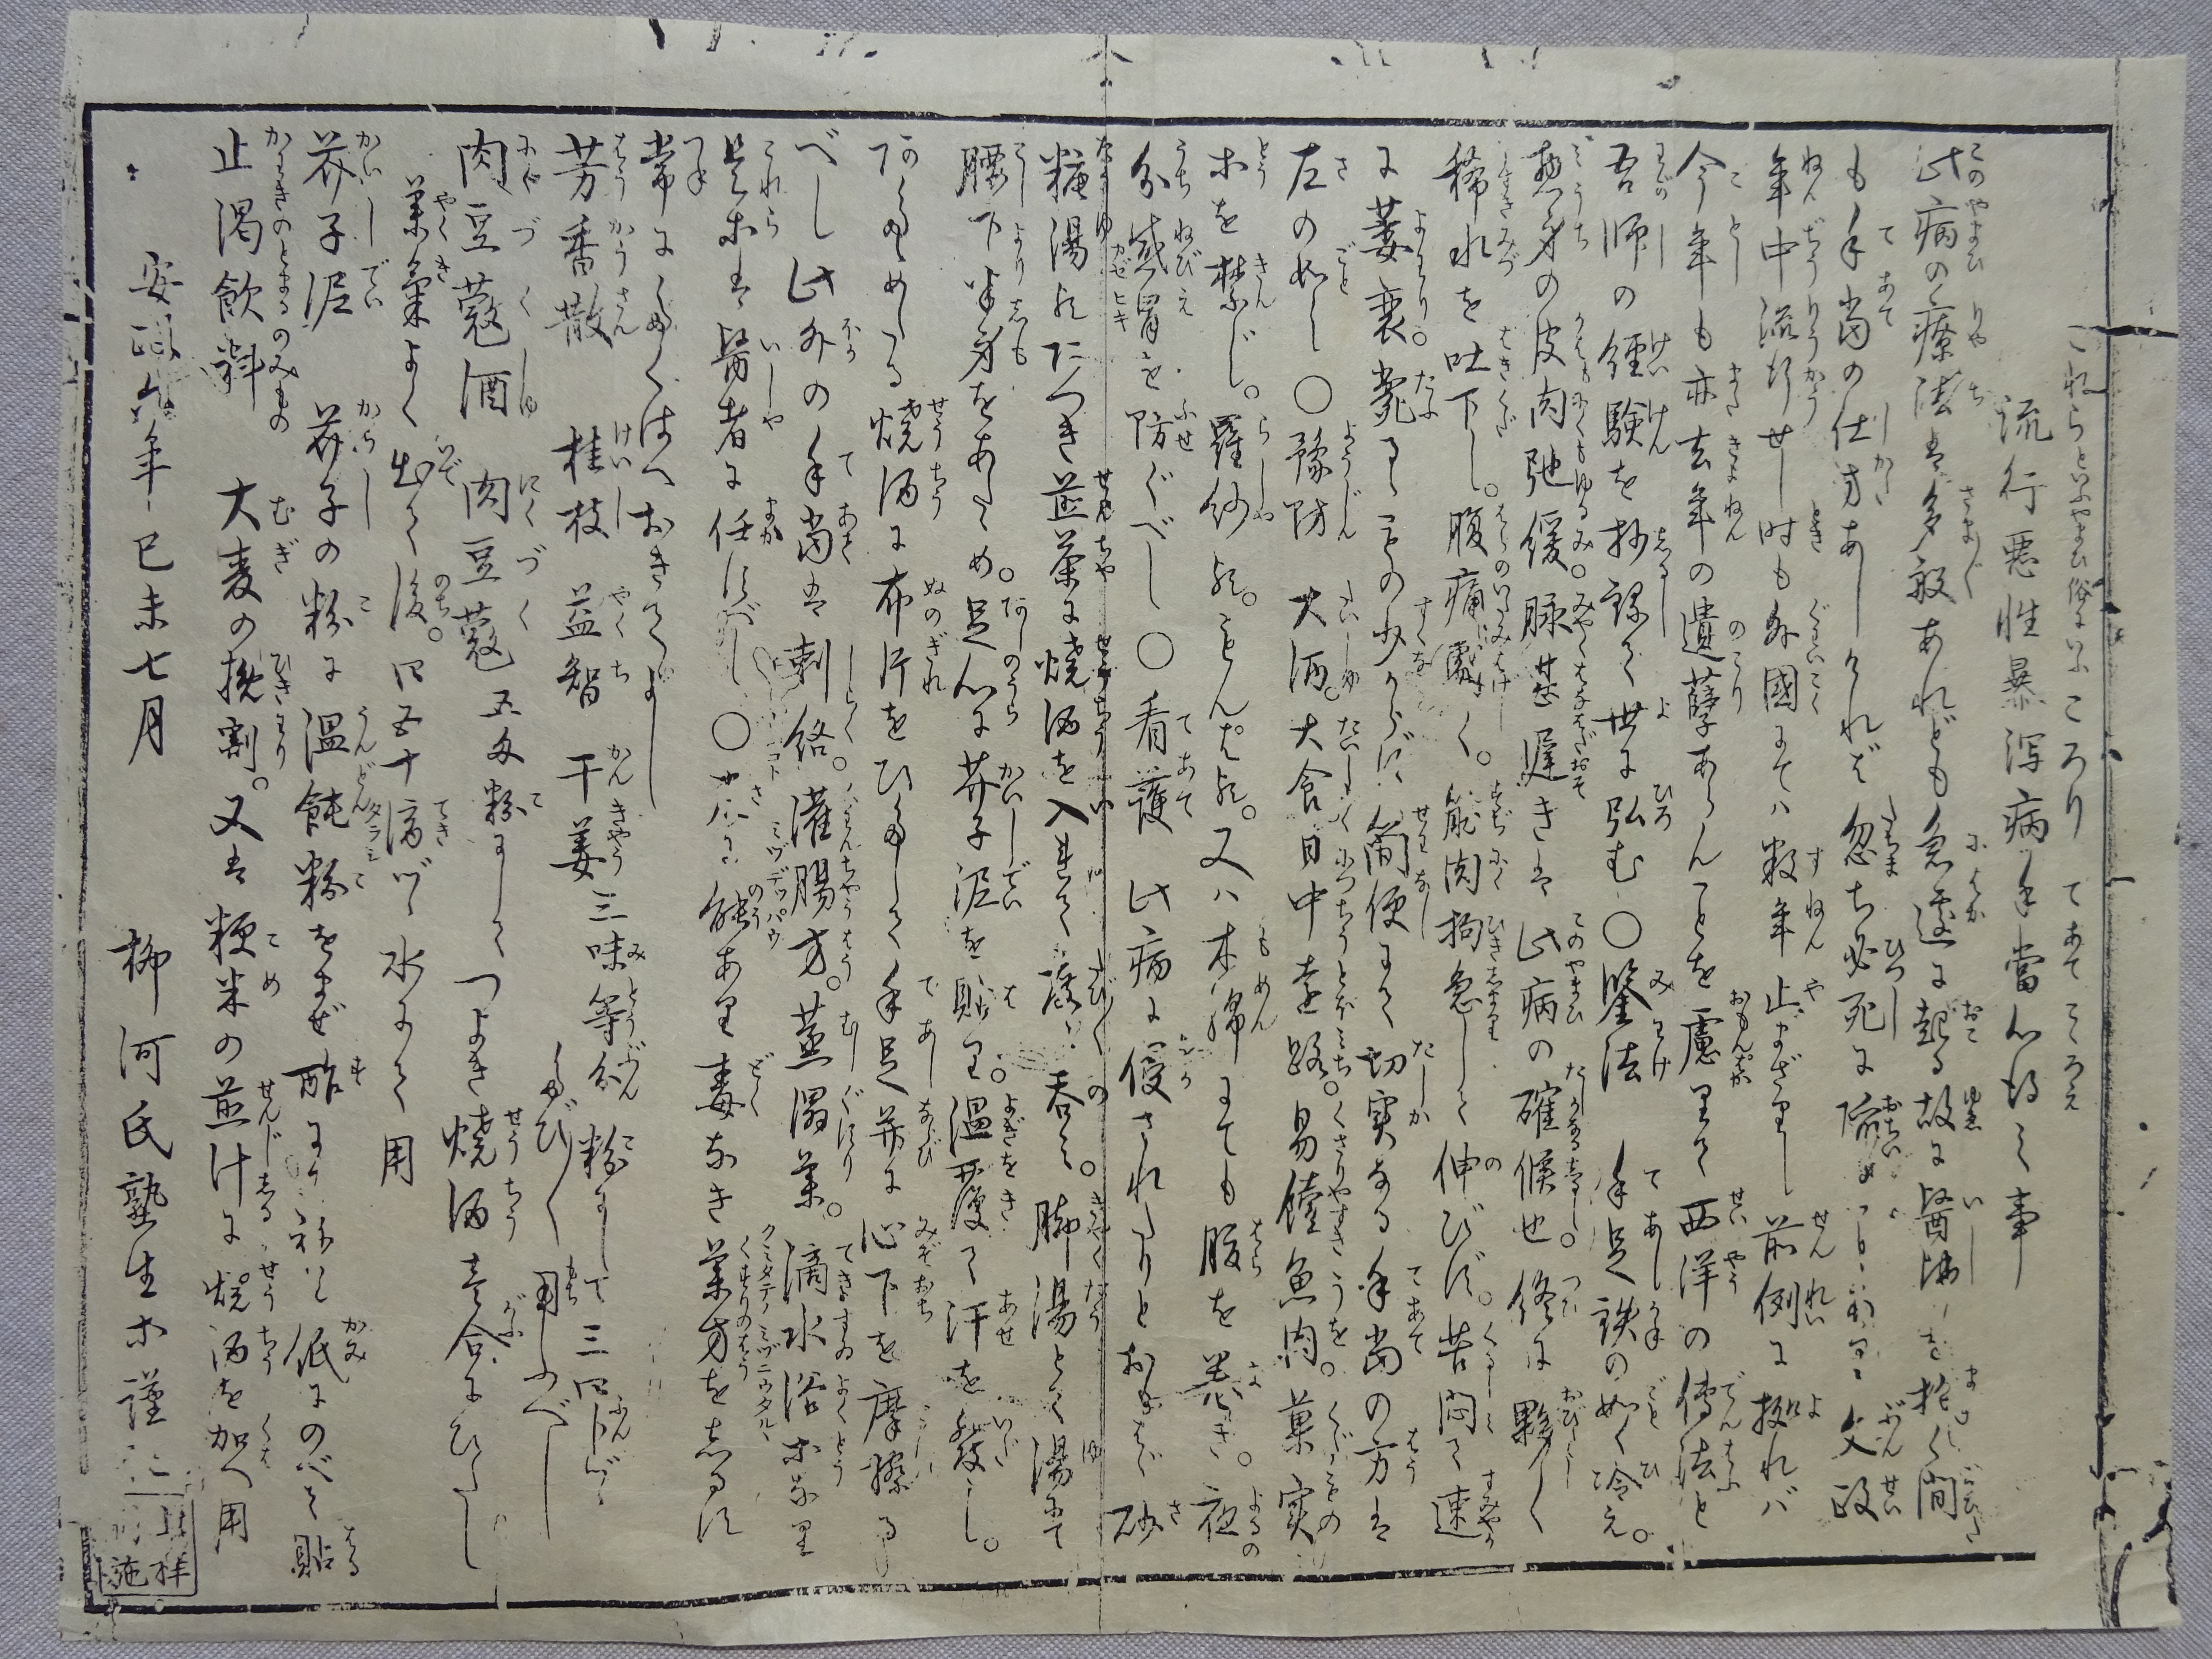 これらといふやまひ俗にいふころり てあてこゝろえ
流行悪性暴瀉病手當心得之事
此病の療法は多般あれども急遽に起る故に醫師を招く間
も手当の仕方あしければ忽ち必死に陥 文政
年中流行せし時も外國にては数年止まざりし前例に拠れバ
今年も亦去年の遺孽あらんことを慮りて西洋の傳法と
吾師の経験を抄録して世に弘む○鑒法 手足鉄の如く冷え。
惣身の皮肉弛緩。脉甚遅きは此病の確候也終に夥しく
稀水を吐下し。腹痛劇く。筋肉拘急して伸びず。苦悶て速
に萎衰。斃るゝもの少からず簡便にて切実なる手当の方は
左の如し○豫防 大酒。大食日中遠路。易饐魚肉。菓実
等を禁じ。羅紗か。もんぱか。又ハ木綿にても腹を巻き。夜
分感冒を防ぐべし○看護 此病に侵されたりとおもはゞ砂
糖湯かたつき煎茶に焼酒を入れて度〻呑〻。脚湯とて湯にて
腰下半身をあたゝめ。足心に芥子泥を貼り。温覆て汗を發し。
あたゝめたる焼酒に布片をひたして手足并に心下を摩擦る
べし此外の手当は刺絡。灌腸方。蒸溻薬。滴水浴等なり
是等は醫者に任すべし○ 能あり毒なき薬方をしるす
常にたくはへおきてよし
芳香散 桂枝 益智 干姜 三味等分粉にして三四分づゝ
たび〳〵用ふべし
肉豆蔲酒 肉豆蔲五匁粉にしてつよき焼酒壱合にひたし
薬氣よく出て後。四五十滴づゝ水にて用
芥子泥 芥子の粉に温飩粉をまぜ酢にてねり紙にのべて貼
止渇飲料 大麦の挽割。又は粳米の煎汁に焼酒を加へ用
安政六年己未七月 柳河氏塾生等謹
施